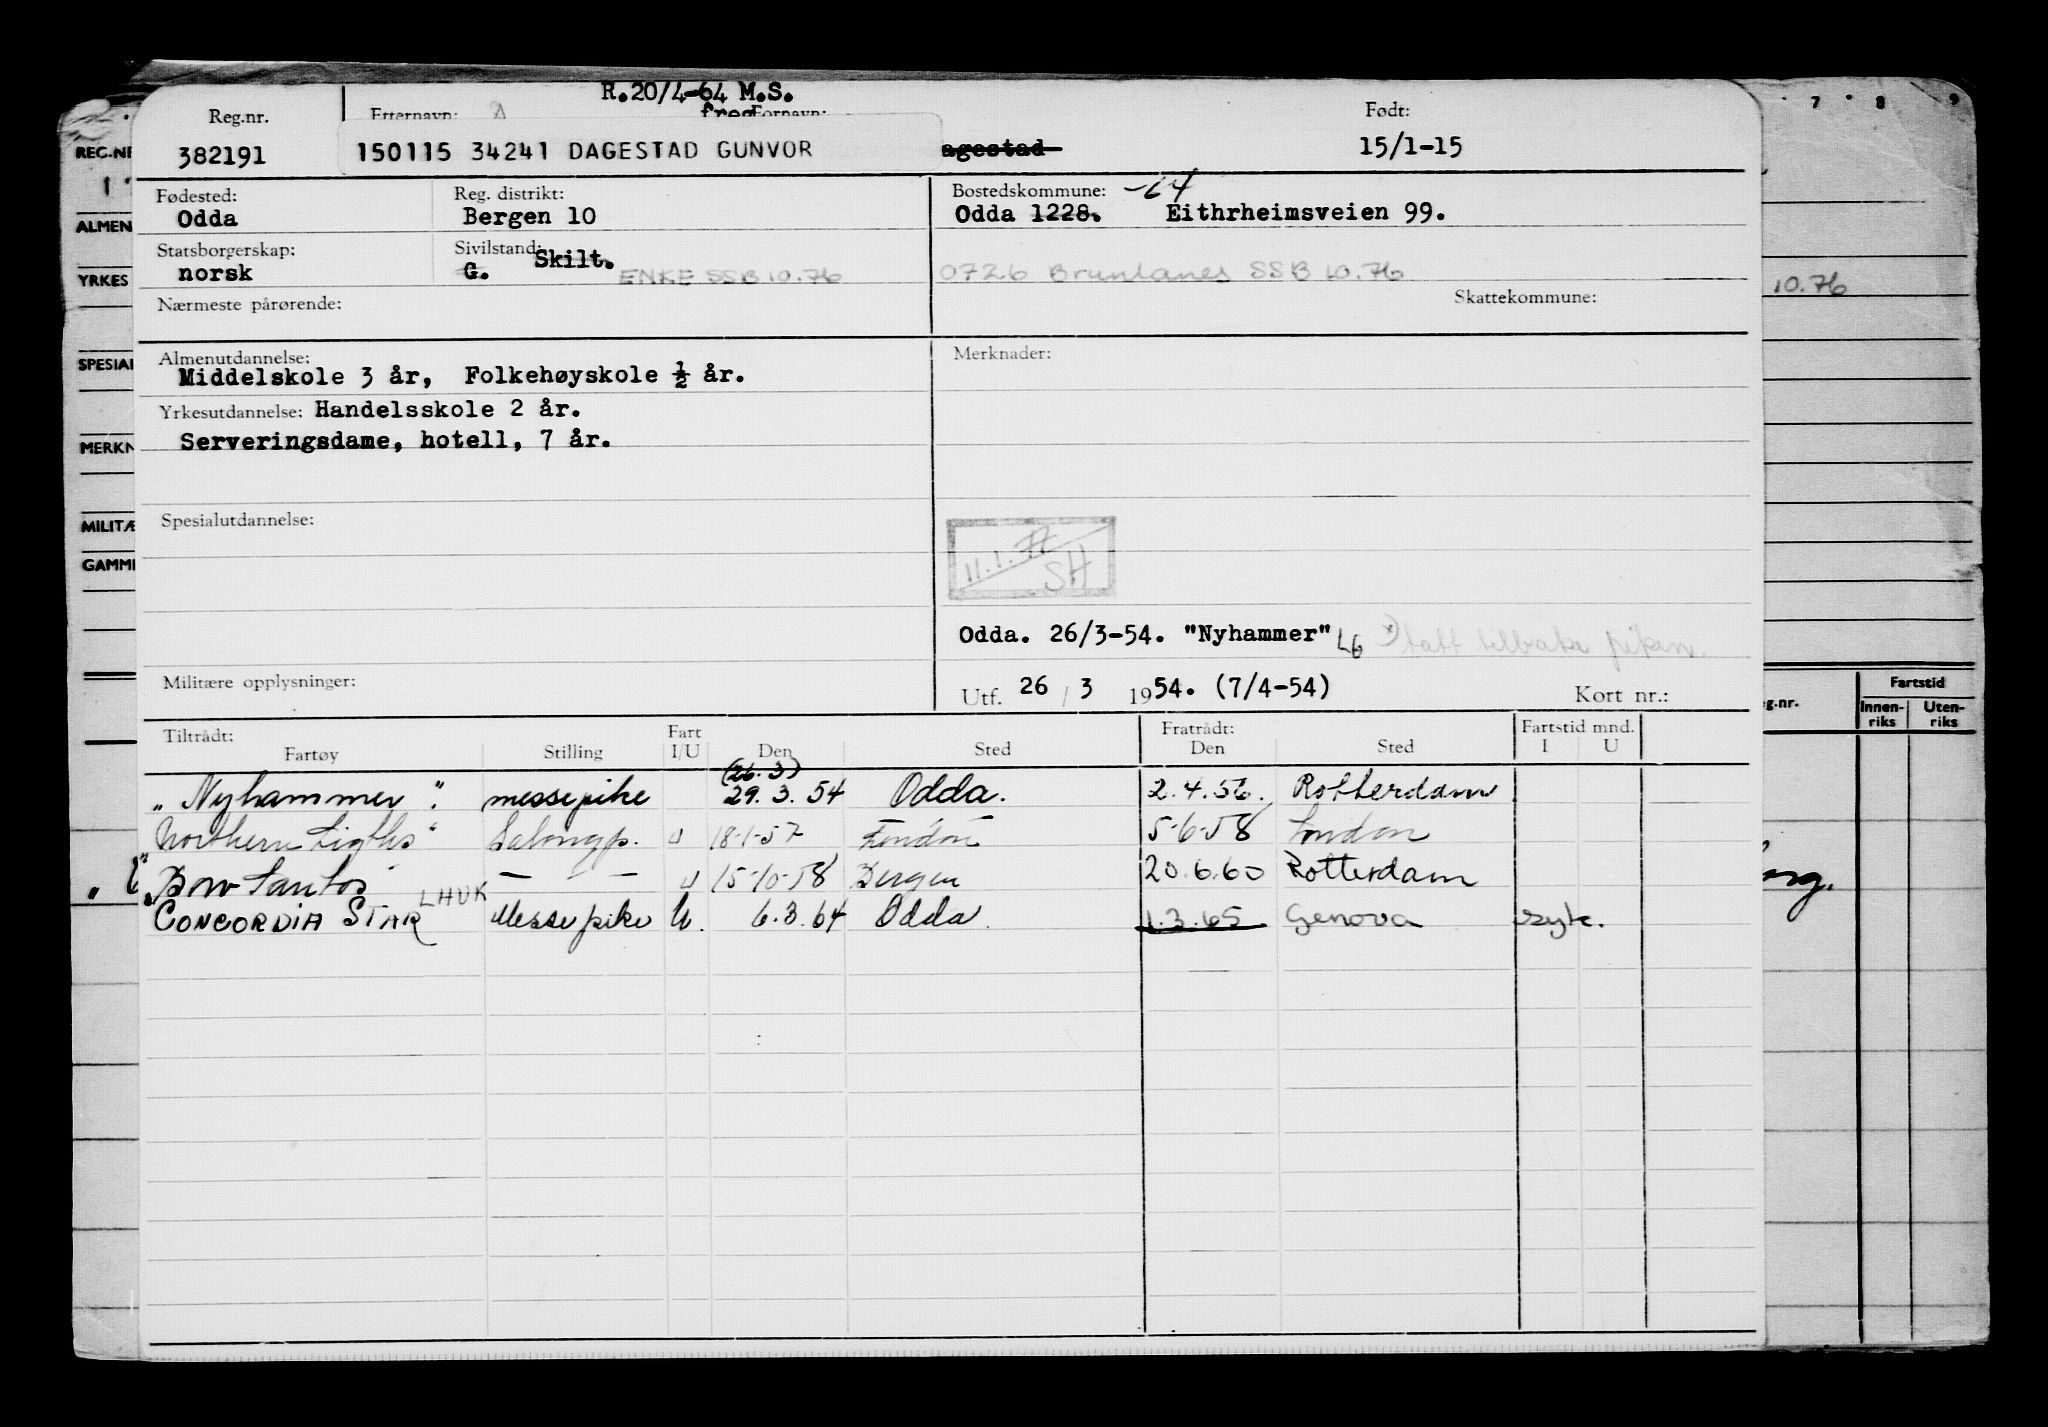 R.20/4-64 M.S.
Reg.nr. Etternavn: Fornavn: Født:
382191 150115 34241 DAGESTAD GUNVOR agestad 15/1-15
Fødested: Reg. distrikt: Bostedskommune: -64
Odda Bergen 10 Odda 1228. Eithrheimsveien 99.
Statsborgerskap: Sivilstand:
norsk G. Skilt. ENKE SSB 10.76 0726 Brunlanes SSB 10.76
Nærmeste pårørende: Skattekommune:
Almenutdannelse: Merknader:
Middelskole 3 år, Folkehøyskole ½ år.
Yrkesutdannelse: Handelsskole 2 år.
Serveringsdame, hotell, 7 år.
Spesialutdannelse:
11.1.77
SH
Odda. 26/3-54. "Nyhammer" LG
Militære opplysninger:
Utf. 26 / 3 1954. (7/4-54) Kort nr.:
Tiltrådt: Fart Fratrådt: Fartstid mnd.
Fartøy Stilling I/U Den Sted Den Sted I U
(26.3)
"Nyhammer". messepike 29.3.54 Odda. 2.4.56. Rotterdam
Northern Ligths" Salongp. U 18-1-57 London 5-6-58 London
"Bow Santos" LHUK — — — U 15-10-58 Bergen 20.6.60 Rotterdam
CONCORDIA STAR Messepike U. 6.3.64 Odda. 1.3.65 Genova syk.
REG.NR
ALMEN
YRKES
SPESIAL
MERKN
MILITÆ
GAMME
7 8 9
10.76
g.nr. Fartstid
Innen-riks Uten-riks